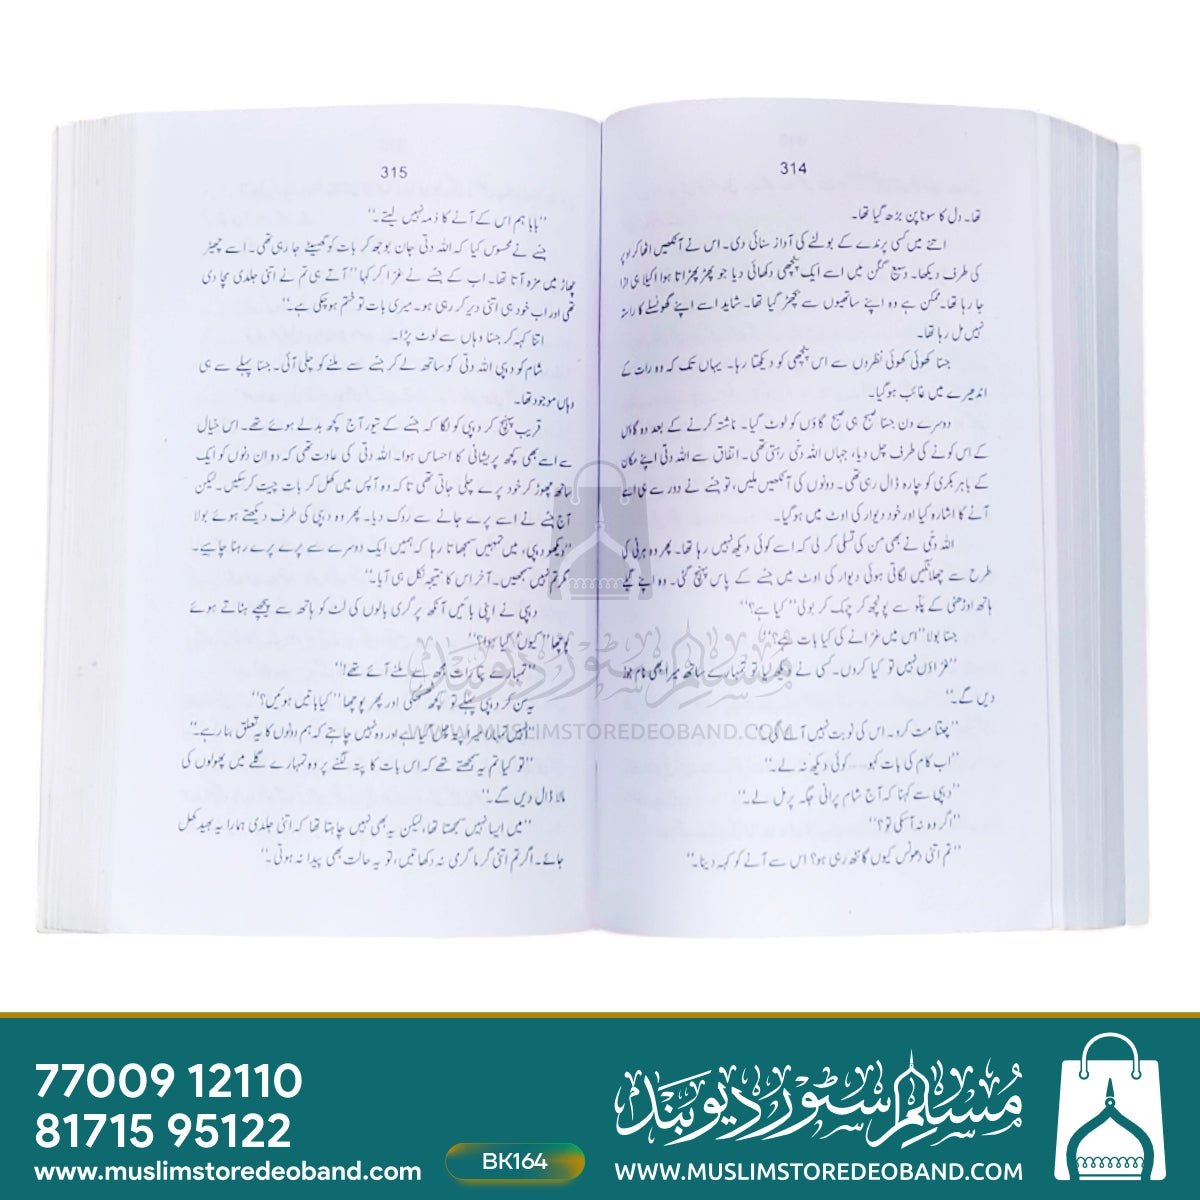 314
تھا۔ دل کا سونا پن بڑھ گیا تھا۔
اتنے میں کسی پرندے کے بولنے کی آواز سنائی دی۔ اس نے آنکھیں اٹھا کر اوپر
کی طرف دیکھا۔ وسیع گگن میں اسے ایک پنچھی دکھائی دیا جو پھڑپھڑاتا ہوا اکیلا ہی اڑا
جا رہا تھا۔ ممکن ہے وہ اپنے ساتھیوں سے بچھڑ گیا تھا۔ شاید اسے اپنے گھونسلے کا راستہ
نہیں مل رہا تھا۔
جسنا کھوئی کھوئی نظروں سے اس پنچھی کو دیکھتا رہا۔ یہاں تک کہ وہ رات کے
اندھیرے میں غائب ہو گیا۔
دوسرے دن جسنا صبح ہی صبح گاؤں کو لوٹ گیا۔ ناشتہ کرنے کے بعد وہ گاؤں
کے اس کونے کی طرف چل دیا، جہاں اللہ دتی رہتی تھی۔ اتفاق سے اللہ دتی اپنے مکان
کے باہر بکری کو چارہ ڈال رہی تھی۔ دونوں کی آنکھیں ملیں، تو جسنے نے دور سے ہی اسے
آنے کا اشارہ کیا اور خود دیوار کی اوٹ میں ہو گیا۔
اللہ دتی نے بھی من کی تسلی کر لی کہ اسے کوئی دیکھ نہیں رہا تھا۔ پھر وہ ہرنی کی
طرح سے چھلانگیں لگاتی ہوئی دیوار کی اوٹ میں جسنے کے پاس پہنچ گئی۔ وہ اپنے گیلے
ہاتھ اوڑھنی کے پلّو سے پونچھ کر چمک کر بولی ''کیا ہے؟''
جسنا بولا ''اس میں غزانے کی کیا بات ہے؟''
''غزاؤں نہیں تو کیا کروں۔ کسی نے دیکھ لیا تو تمہارے ساتھ میرا بھی نام جوڑ
دیں گے۔''
''چنتا مت کرو۔ اس کی نوبت نہیں آئے گی۔''
''اب کام کی بات کہو—— کوئی دیکھ نہ لے۔''
''دپی سے کہنا کہ آج شام پرانی جگہ پر مل لے۔''
''اگر وہ نہ آسکی تو؟''
''تم اتنی دھونس کیوں گانٹھ رہی ہو؟ اس سے آنے کو کہہ دینا۔''
315
''بابا ہم اس کے آنے کا ذمہ نہیں لیتے۔''
جسنے نے محسوس کیا کہ اللہ دتی جان بوجھ کر بات کو گھسیٹے جا رہی تھی۔ اسے چھیڑ
چھاڑ میں مزہ آتا تھا۔ اب کے جسنے نے غزا کر کہا ''آتے ہی تم نے اتنی جلدی مچا دی
تھی اور اب خود ہی اتنی دیر کر رہی ہو۔ میری بات تو ختم ہو چکی ہے۔''
اتنا کہہ کر جسنا وہاں سے لوٹ پڑا۔
شام کو دپی اللہ دتی کو ساتھ لے کر جسنے سے ملنے کو چلی آئی۔ جسنا پہلے سے ہی
وہاں موجود تھا۔
قریب پہنچ کر دپی کو لگا کہ جسنے کے تیور آج کچھ بدلے ہوئے تھے۔ اس خیال
سے اسے بھی کچھ پریشانی کا احساس ہوا۔ اللہ دتی کی عادت تھی کہ دو ان دونوں کو ایک
ساتھ چھوڑ کر خود پرے چلی جاتی تھی تاکہ وہ آپس میں کھل کر بات چیت کر سکیں۔ لیکن
آج جسنے نے اسے پرے جانے سے روک دیا۔ پھر وہ دپی کی طرف دیکھتے ہوئے بولا
''دیکھو دپی، میں تمہیں سمجھاتا رہا کہ ہمیں ایک دوسرے سے پرے پرے رہنا چاہیے۔
مگر تم نہیں سمجھیں۔ آخر اس کا نتیجہ نکل ہی آیا۔''
دپی نے اپنی بائیں آنکھ پر گری بالوں کی لٹ کو ہاتھ سے پیچھے ہٹاتے ہوئے
پوچھا ''کیوں کیا ہوا؟''
''تمہارے پتا رات مجھ سے ملنے آئے تھے!''
یہ سن کر دپی پہلے تو کچھ ٹھٹھکی اور پھر پوچھا ''کیا باتیں ہوئیں؟''
''انہیں تمہارا میرا پتہ چل گیا ہے اور وہ نہیں چاہتے کہ ہم دونوں کا یہ تعلق بنا رہے۔''
''تو کیا تم یہ سمجھتے تھے کہ اس بات کا پتہ لگنے پر وہ تمہارے گلے میں پھولوں کی
مالا ڈال دیں گے۔''
''میں ایسا نہیں سمجھتا تھا، لیکن یہ بھی نہیں چاہتا تھا کہ اتنی جلدی ہمارا یہ بھید کھل
جائے۔ اگر تم اتنی گرما گرمی نہ دکھاتیں، تو یہ حالت بھی پیدا نہ ہوتی۔''
مسلم سٹور دیوبند
WWW.MUSLIMSTOREDEOBAND.COM
77009 12110
81715 95122
www.muslimstoredeoband.com
BK164
مسلم سٹور دیوبند
WWW.MUSLIMSTOREDEOBAND.COM